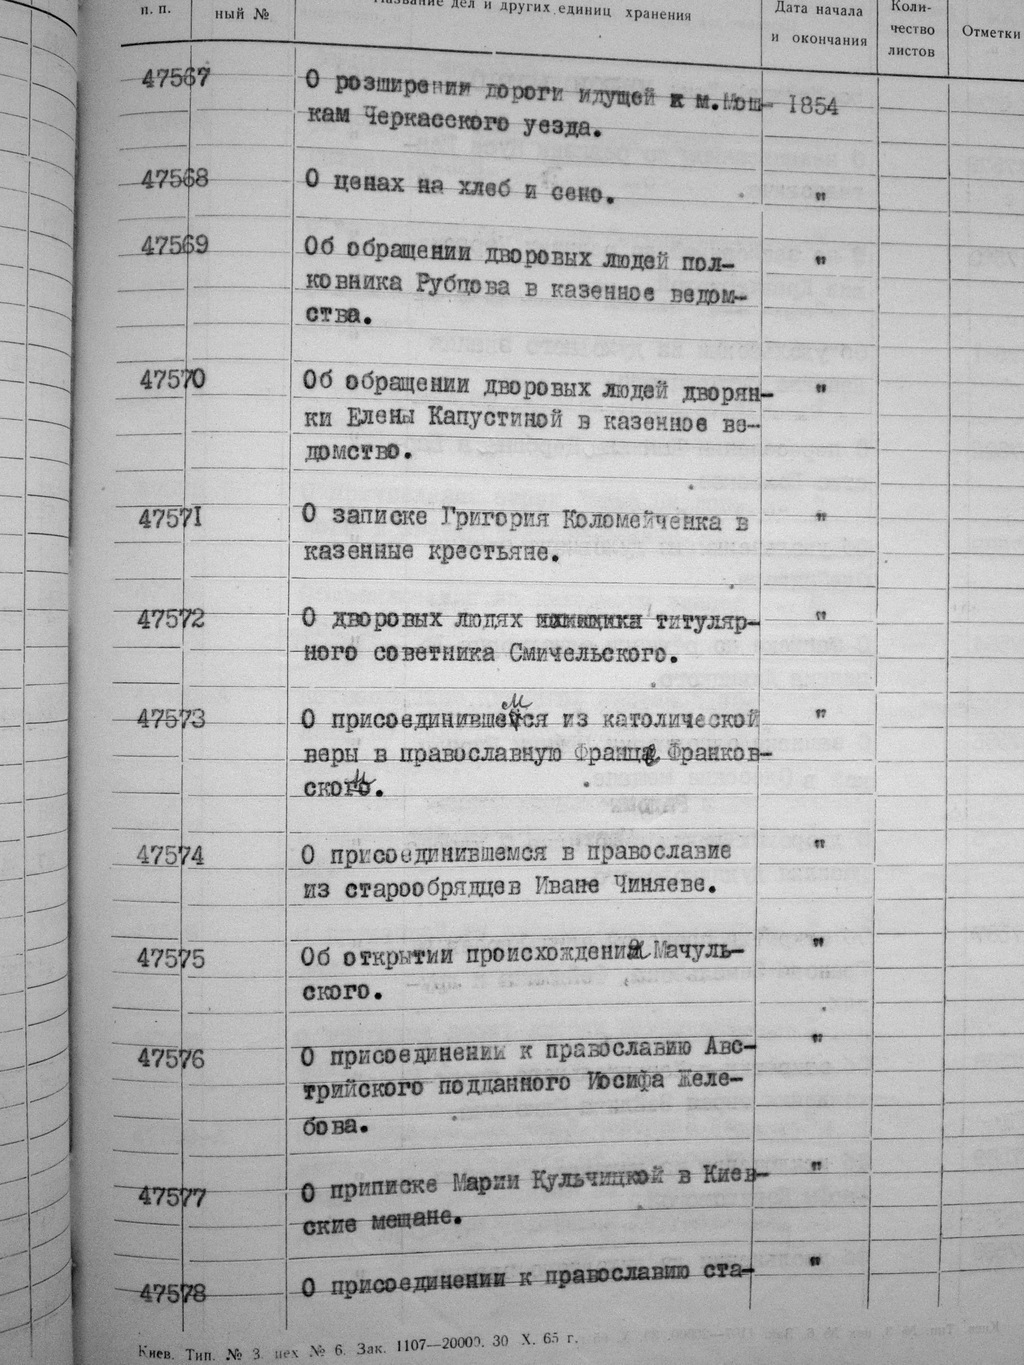 п. п.
ный №
Название дел и других единиц хранения
Дата начала
и окончания
Коли-
чество
листов
Отметки
47567 О розширении дороги идущей к м.Мош- 1854
кам Черкасского уезда.
47568 О ценах на хлеб и сено. "
47569 Об обращении дворовых людей пол- "
ковника Рубцова в казенное ведом-
ства.
47570 Об обращении дворовых людей дворян- "
ки Елены Капустиной в казенное ве-
домство.
47571 О записке Григория Коломейченка в "
казенные крестьяне.
47572 О дворовых людях титуляр- "
ного советника Смичельского.
47573 О присоединившемся из католической "
веры в православную Франце Франков-
ском.
47574 О присоединившемся в православие "
из старообрядцев Иване Чиняеве.
47575 Об открытии происхождения Мачуль- "
ского.
47576 О присоединении к православию Авс- "
трийского подданного Иосифа Желе-
бова.
47577 О приписке Марии Кульчицкой в Киев- "
ские мещане.
47578 О присоединении к православию ста- "
Киев. Тип. № 3 цех № 6. Зак. 1107—20000. 30 X. 65 г.